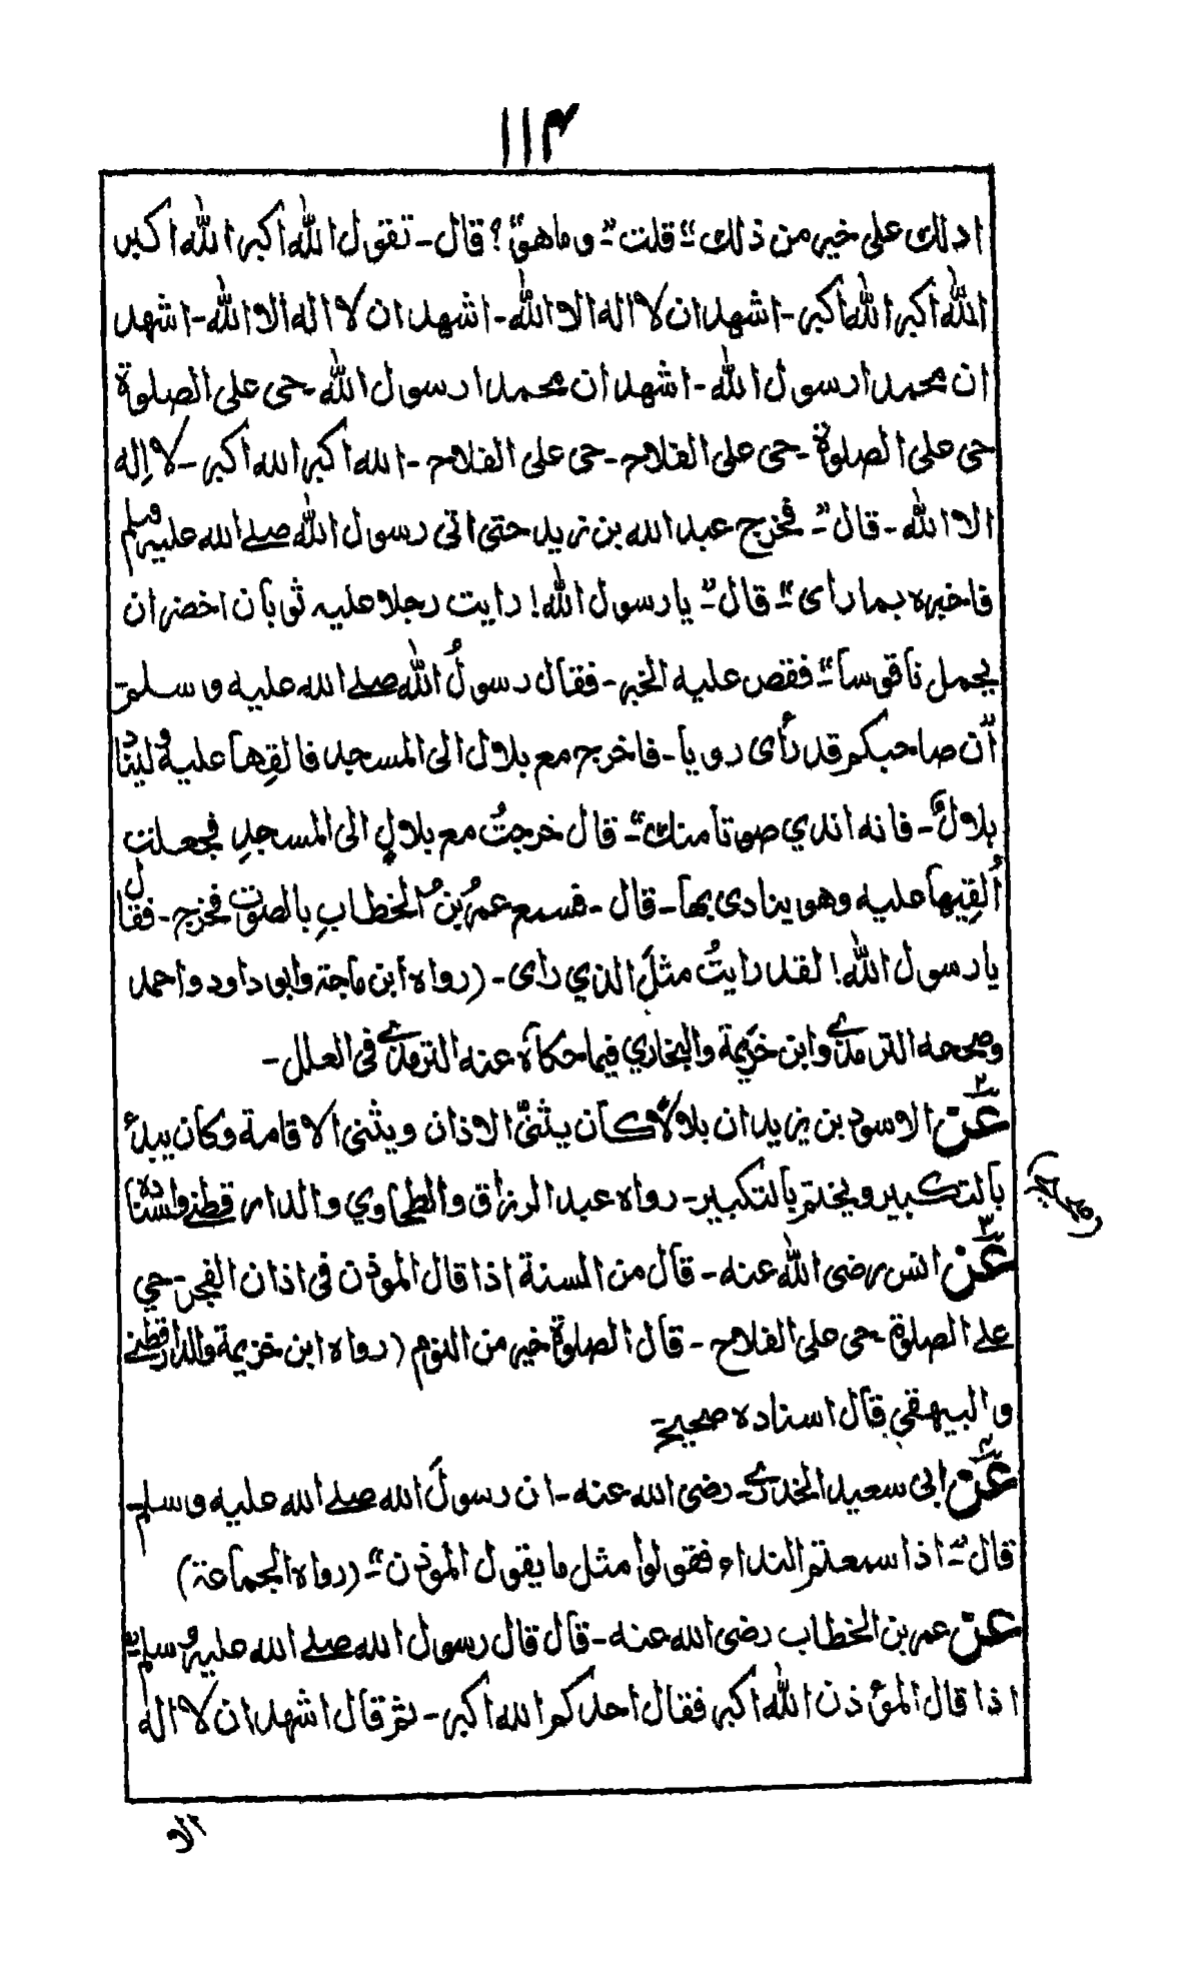 ۱۱۴
ادلك على خير من ذلك" قلت" وما هو؟ قال- تقول الله اكبر الله اكبر
الله اكبر الله اكبر- اشهد ان لا اله الا الله- اشهد ان لا اله الا الله- اشهد
ان محمدا رسول الله- اشهد ان محمدا رسول الله- حى على الصلوة
حى على الصلوة- حى على الفلاح- حى على الفلاح- الله اكبر الله اكبر- لا إله
الا الله- قال" فخرج عبد الله بن زيد حتى اتى رسول الله صلے الله عليه وسلم
فاخبره بما رأى" قال" يا رسول الله! رايت رجلا عليه ثوبان اخضران
يحمل ناقوسا" فقص عليه الخبر- فقال رسولُ الله صلے الله عليه وسلم-
اَنّ صاحبكم قد رأى رويا- فاخرج مع بلال الى المسجد فالقِها عليه وليناد
بلالٌ- فانه اندي صوتا منك" قال خرجتُ مع بلالٍ الى المسجدِ فجعلت
اُلقِيها عليه وهو ينادى بها- قال- فسمع عمرُ بنُ الخطابِ بالصوت فخرج- فقال
يا رسول الله! لقد رايتُ مثلَ الذي راى- (رواه ابن ماجة وابو داود واحمد
وصححه الترمذے وابن خزيمة والبخاري فيما حكاه عنه الترمذے فى العلل-
۲ عن الاسود بن يزيد ان بلالاً كان يثنّى الاذان ويثنى الاقامة وكان يبدأ
بالتكبير ويختم بالتكبير- رواه عبد الرزاق والطحاوي والدار قطنے واسناده
(صحيح)
۳ عن انس رضى الله عنه- قال من السنة اذا قال الموذن فى اذان الفجر- حي
علے الصلوة- حى على الفلاح- قال الصلوة خير من النوم (رواه ابن خزيمة والدارقطنے
والبيهقي قال اسناده صحيح-
۴ عن ابى سعيد الخدرے- رضى الله عنه- ان رسولَ الله صلے الله عليه وسلم-
قال" اذا سمعتم النداء فقولوا مثل ما يقول الموذن" (رواه الجماعة)
عن عمر بن الخطاب رضى الله عنه- قال قال رسول الله صلے الله عليه وسلم"
اذا قال المؤذن الله اكبر فقال احدكم الله اكبر- ثم قال اشهد ان لا اله
الا